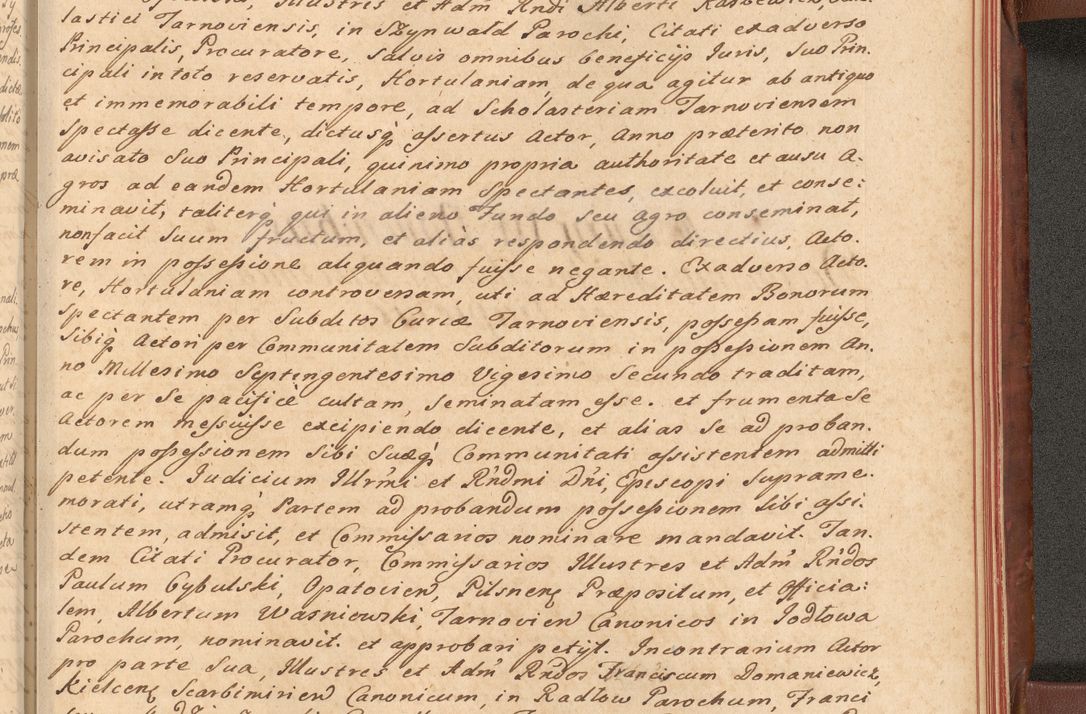 Illustris et Adm̃ Rñdi Alberti
lastici Tarnoviensis, in Szynwałd Parochi, Citati exadverso
Principalis, Procuratore, Salvis omnibus beneficijs Iuris, Suo Prin.
cipali in toto reservatis, Hortulaniam, de qua agitur ab antiquo
et immemorabili tempore, ad Scholasteriam Tarnoviensem
Spectasse dicente, dictusq̃ assertus Actor, Anno præterito non
avisato Suo Principali, quinimo propria authoritate et ausu A.
gros ad eandem Hortulaniam Spectantes, excoluit, et conse:
minavit, taliterq̃ qui in alieno Fundo seu agro conseminat,
non facit Suum fructum, et aliàs respondendo directius, Acto.
rem in possessione aliquando fuisse negante. Exadverso Acto.
re, Hortulaniam controversam, uti ad Hæreditatem Bonorum
Spectantem per Subditos Curiæ Tarnoviensis, possessam fuisse,
Sibiq̃ Actori per Communitatem Subditorum in possessionem An.
no Millesimo Septingentesimo Vigesimo Secundo traditam,
ac per Se pacificè cultam, Seminatam esse. et frumenta Se
Actorem messuisse excipiendo dicente, et alias Se ad proban.
dum possessionem Sibi Suæq̃ Communitati assistentem admitti
petente. Iudicium Illr̃mi et Rñdmi Dñi, Episcopi Suprame.
morati, utramq̃ Partem ad probandum possessionem Sibi assi.
stentem, admisit, et Commissarios nominare mandavit. Tan.
dem Citati Procurator, Commissarios Illustres et Adm̃ Rñdos
Paulum Cybulski, Opatovien̄, Pilsnen̄ Præpositum, et Officia:
lem, Albertum Wasniewski, Tarnovien̄ Canonicos in Jodłowa
Parochum, nominavit. et approbari petijt. Incontrarium Actor
pro parte Sua, Illustres et Adm̃ Rñdos Franciscum Domaniewicz,
Kielcen̄ Scarbimirien̄ Canonicum, in Radłow Parochum, Franci